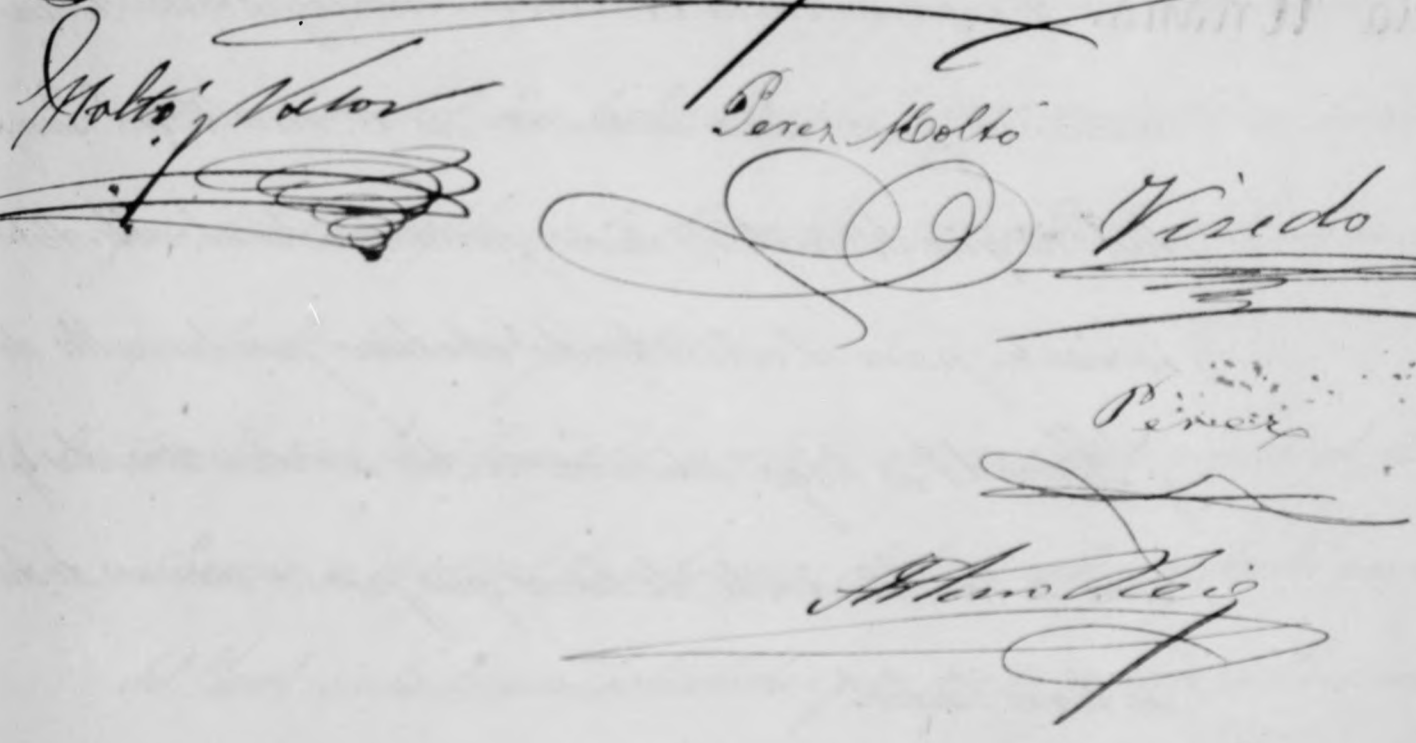 Moltó y Valor
Perez Moltó
Visedo
Perez
Arturo Reig